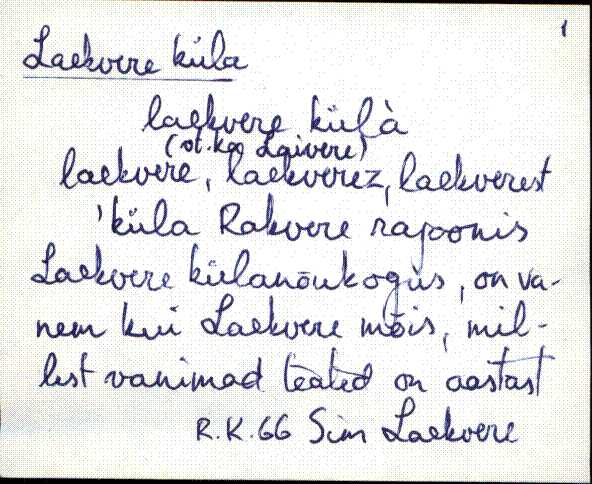 1
Laekvere küla
laekvere külà
(vt. ka Laivere)
laekvere, laekverez, laekverest
'küla Rakvere rajoonis
Laekvere külanõukogus, on va-
nem kui Laekvere mõis, mil-
lest vanimad teated on aastast
R.K.66 Sim Laekvere